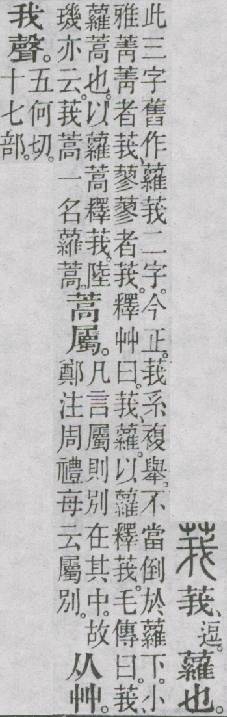 莪 莪、逗。蘿也。
此三字舊作蘿莪二字。今正。莪系複舉。不當倒於蘿下。小
雅菁菁者莪、蓼蓼者莪。釋艸曰。莪、蘿。以蘿釋莪。毛傳曰。莪、
蘿蒿也。以蘿蒿釋莪。陸
璣亦云。莪蒿一名蘿蒿。
蒿屬。
凡言屬則別在其中。故
鄭注周禮每云屬別。
从艸。
我聲。
五何切。
十七部。